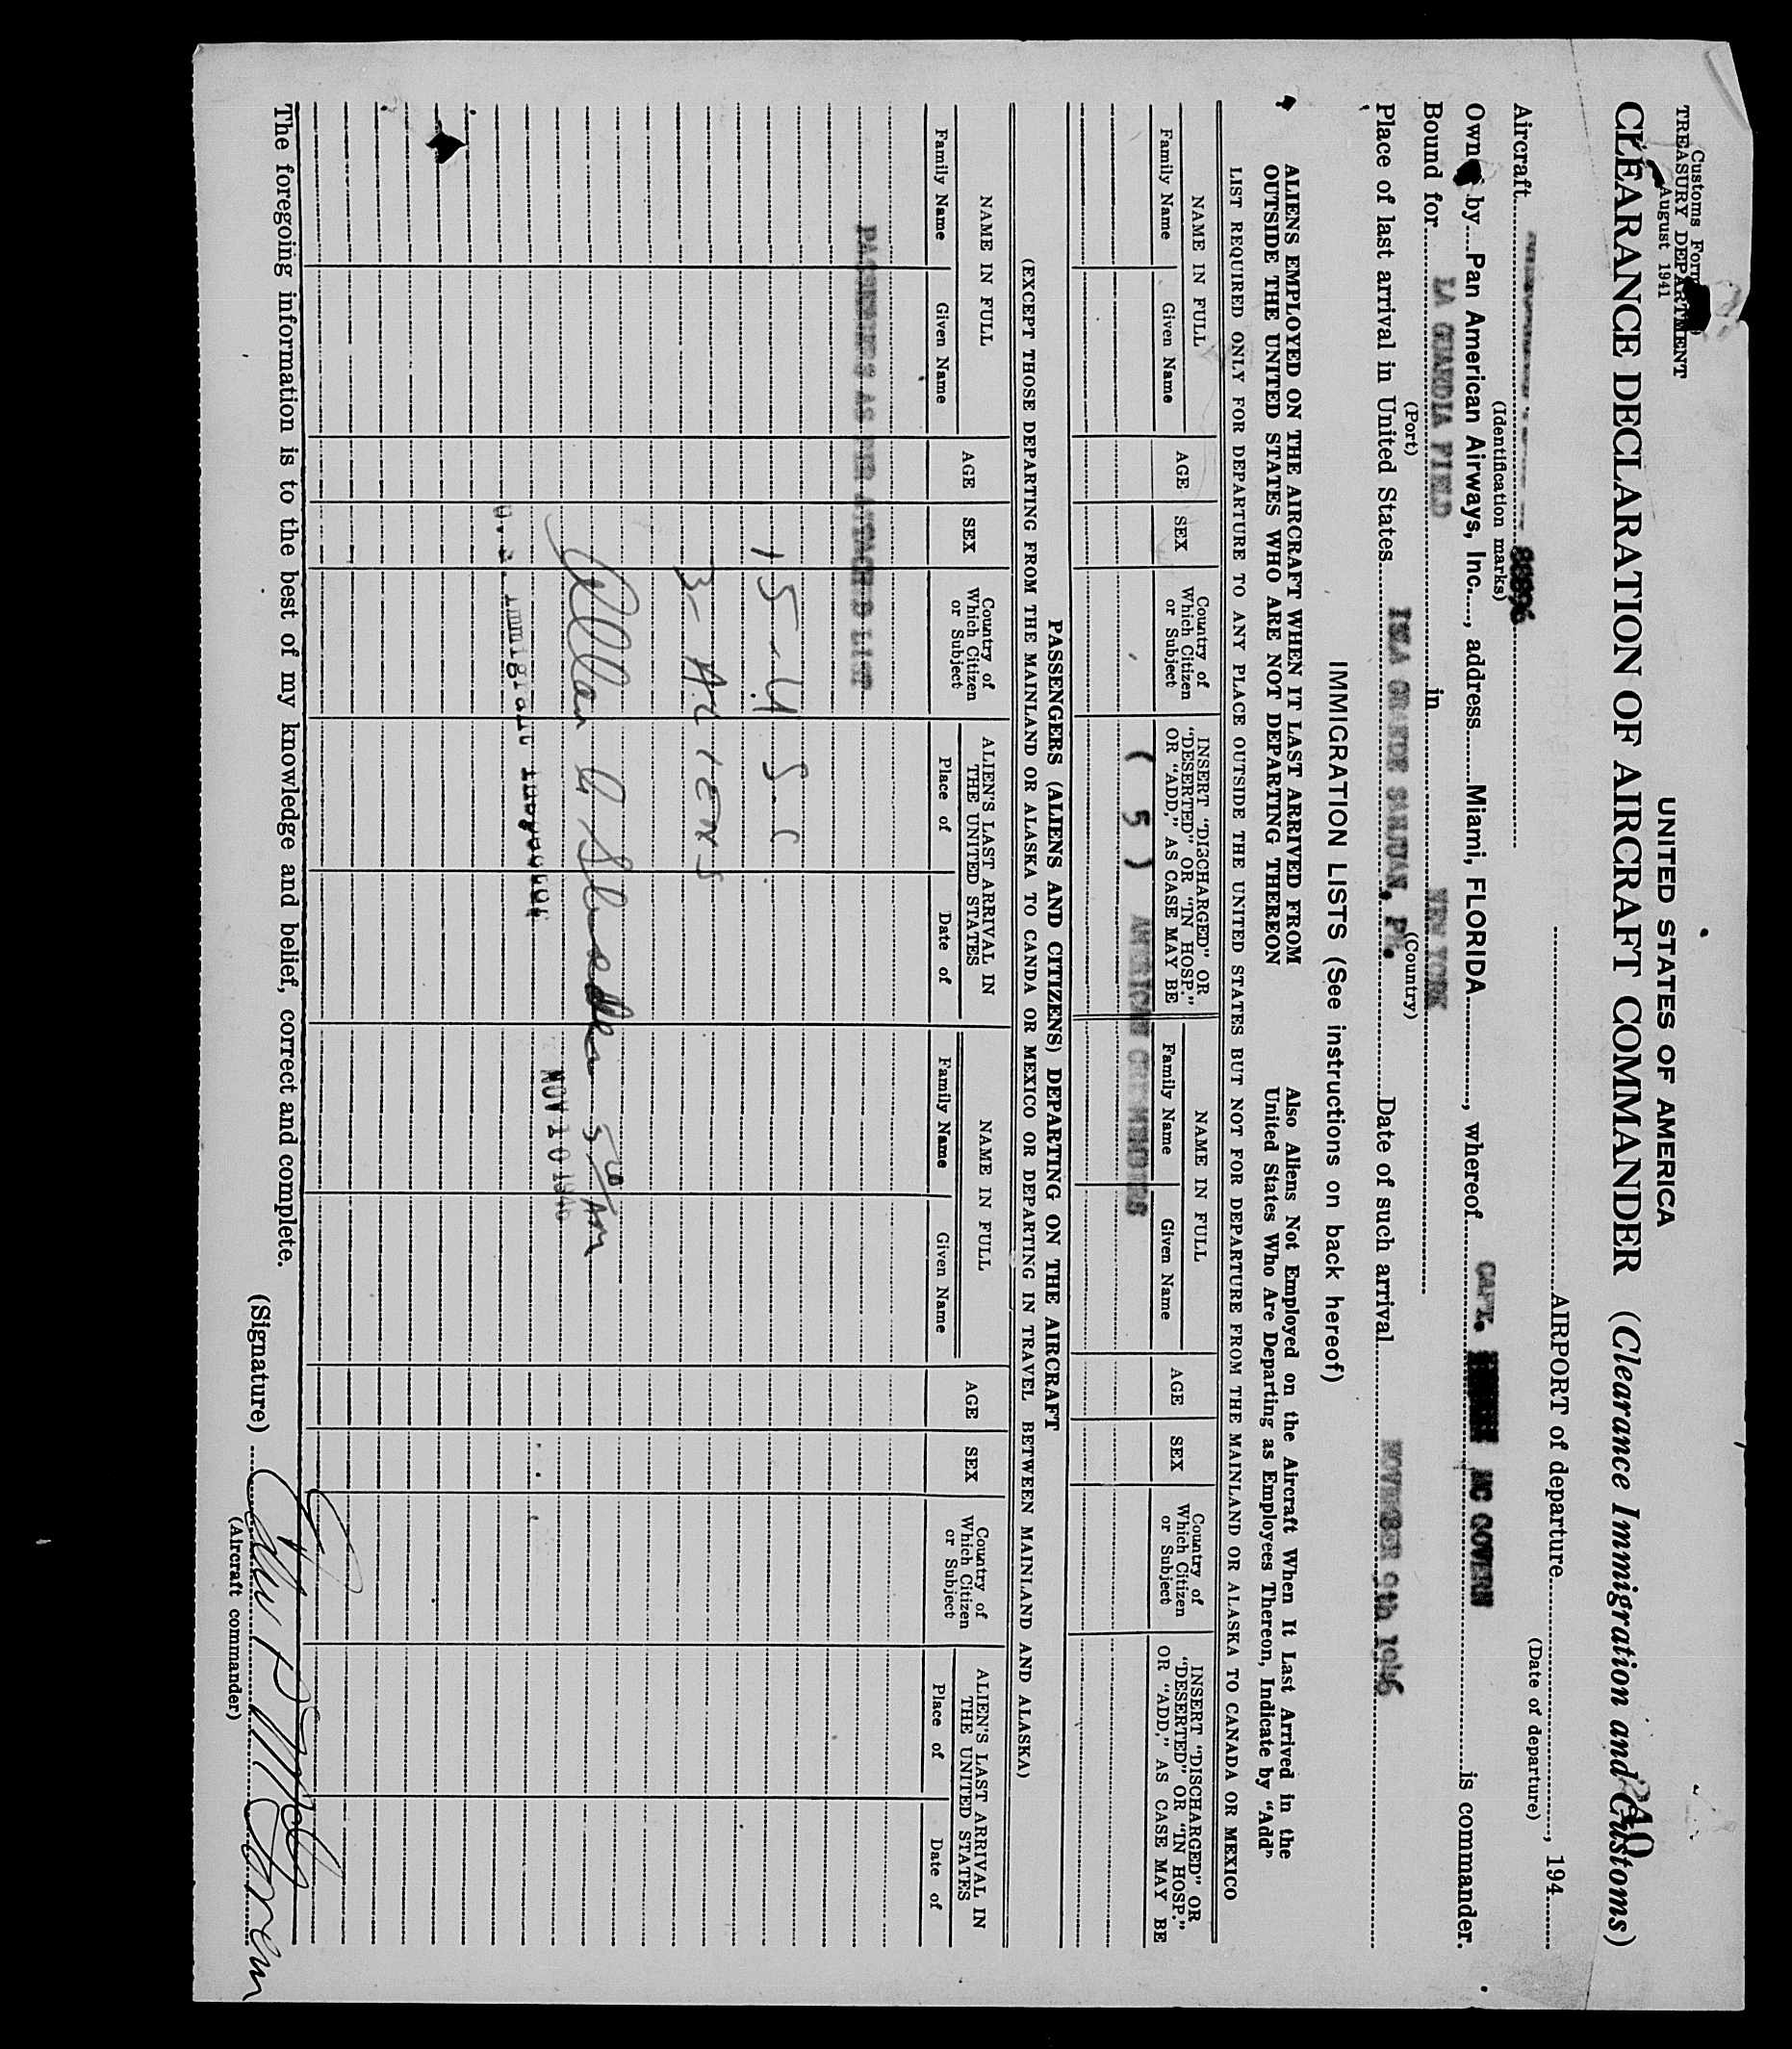 Customs Form
TREASURY DEPARTMENT
August 1941
UNITED STATES OF AMERICA
CLEARANCE DECLARATION OF AIRCRAFT COMMANDER (Clearance Immigration and Customs)
AIRPORT of departure , 194
(Date of departure)
Aircraft 88896
(Identification marks)
Owned by Pan American Airways, Inc., address Miami, FLORIDA, whereof CAPT. MC GOVERN is commander.
Bound for LA GUARDIA FIELD in NEW YORK
(Port) (Country)
Place of last arrival in United States ISLA GRANDE SANJUAN, PR. Date of such arrival NOVEMBER 9th 1946
IMMIGRATION LISTS (See instructions on back hereof)
ALIENS EMPLOYED ON THE AIRCRAFT WHEN IT LAST ARRIVED FROM
OUTSIDE THE UNITED STATES WHO ARE NOT DEPARTING THEREON
Also Aliens Not Employed on the Aircraft When It Last Arrived in the
United States Who Are Departing as Employees Thereon, Indicate by "Add"
LIST REQUIRED ONLY FOR DEPARTURE TO ANY PLACE OUTSIDE THE UNITED STATES BUT NOT FOR DEPARTURE FROM THE MAINLAND OR ALASKA TO CANADA OR MEXICO
NAME IN FULL AGE SEX Country of Which Citizen or Subject INSERT "DISCHARGED" OR "DESERTED" OR "IN HOSP." OR "ADD," AS CASE MAY BE NAME IN FULL AGE SEX Country of Which Citizen or Subject INSERT "DISCHARGED" OR "DESERTED" OR "IN HOSP." OR "ADD," AS CASE MAY BE
Family Name Given Name Family Name Given Name
( 5 ) AMERICAN CREWMEMBERS
PASSENGERS (ALIENS AND CITIZENS) DEPARTING ON THE AIRCRAFT
(EXCEPT THOSE DEPARTING FROM THE MAINLAND OR ALASKA TO CANDA OR MEXICO OR DEPARTING IN TRAVEL BETWEEN MAINLAND AND ALASKA)
NAME IN FULL AGE SEX Country of Which Citizen or Subject ALIEN'S LAST ARRIVAL IN THE UNITED STATES NAME IN FULL AGE SEX Country of Which Citizen or Subject ALIEN'S LAST ARRIVAL IN THE UNITED STATES
Family Name Given Name Place of Date of Family Name Given Name Place of Date of
PASSENGERS AS PER ATTACHED LIST
15 - U S. C.
3 - Aliens
Allan
U. S. Immigrant Inspector
NOV 10 1946
The foregoing information is to the best of my knowledge and belief, correct and complete.
(Signature)
(Aircraft commander)